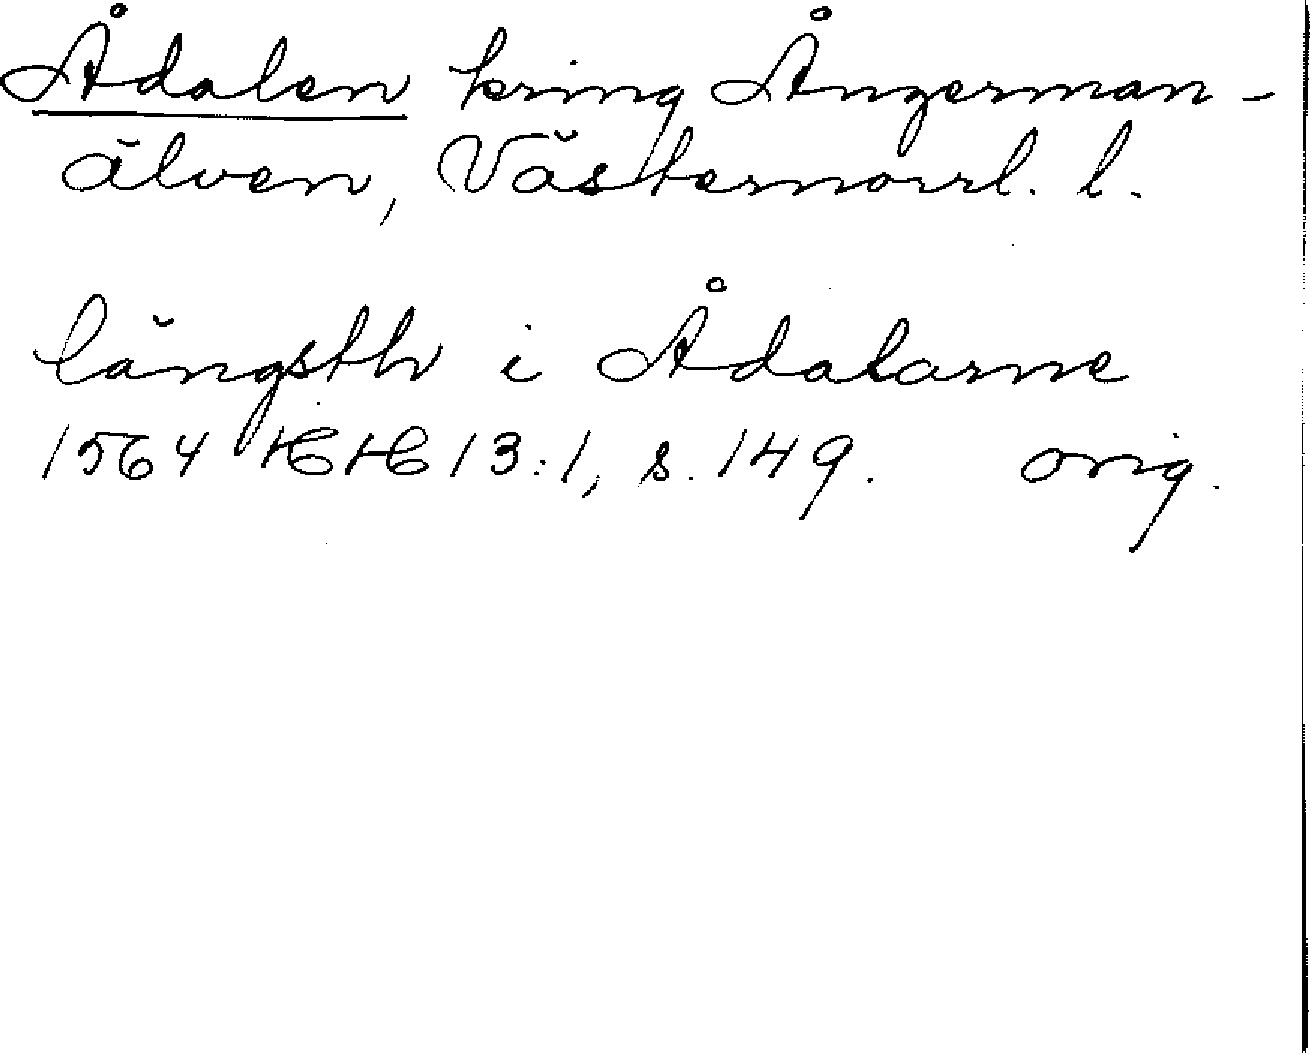 Ådalen kring Ångerman-
älven, Västernorrl. l.
längsth i Ådalarne
1564 HH 13:1, s. 149. orig.